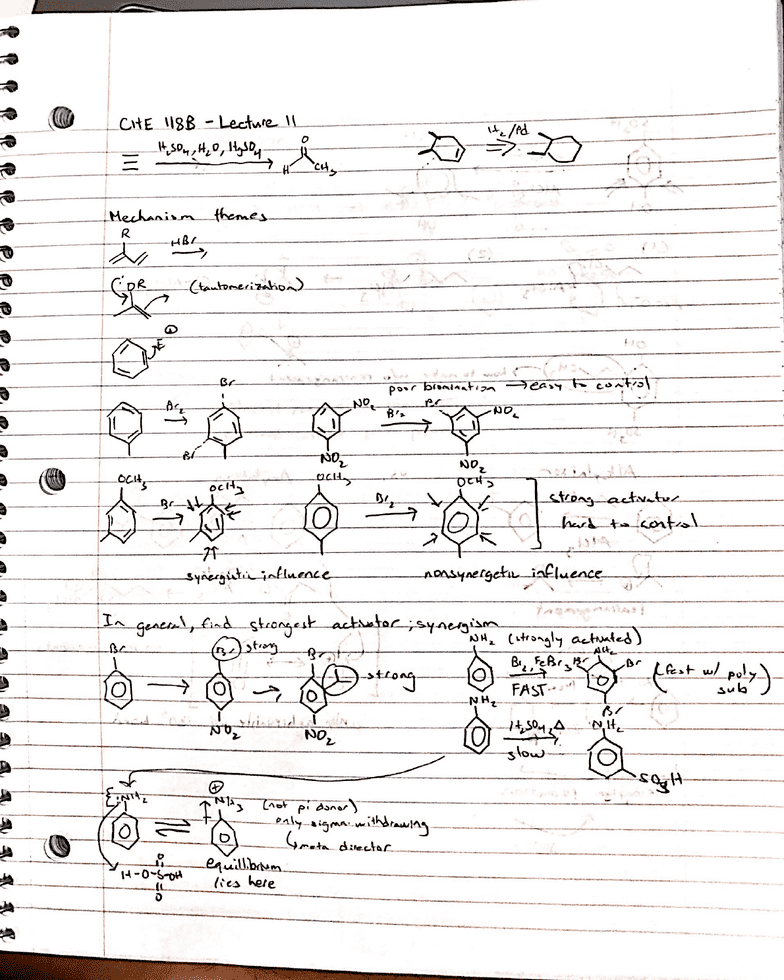 CHE 118B - Lecture 11
H₂SO₄, H₂O, HgSO₄
O
H CH₃
H₂/Pd
Mechanism themes
R
HBr
:OR (tautomerization)
E ⊕
poor bromination → easy to control
Br₂ Br Br
NO₂ NO₂ Br₂ Br NO₂ NO₂
OCH₃ Br OCH₃
OCH₃ Br₂ OCH₃
strong activator
hard to control
synergistic influence
nonsynergetic influence
In general, find strongest activator; synergism
Br Br strong NO₂ Br strong NO₂
NH₂ (strongly activated)
Br₂, FeBr₃ NH₂ Br Br Br
FAST
(fast w/ poly
sub)
NH₂ H₂SO₄, Δ NH₂
slow
SO₃H
:NH₂ ⊕ NH₃ (not pi donor)
only sigma withdrawing
↳ meta director
H-O-S-OH O O
equillibrium
lies here